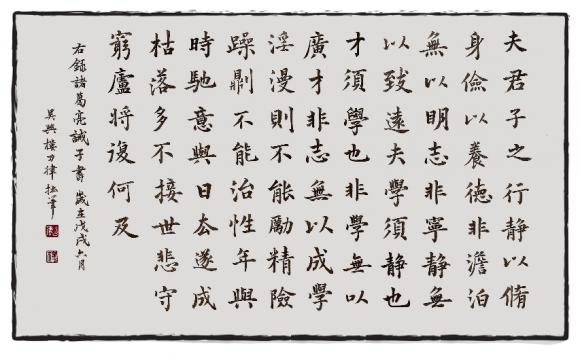 夫君子之行静以脩
身儉以養德非澹泊
無以明志非寧静無
以致遠夫學須静也
才須學也非學無以
廣才非志無以成學
淫漫則不能勵精險
躁𠟭不能治性年與
時馳意與日厺遂成
枯落多不接世悲守
窮廬將復何及
右録諸葛亮誡子書歲在戊戌六月
吴興樓刀律拙筆